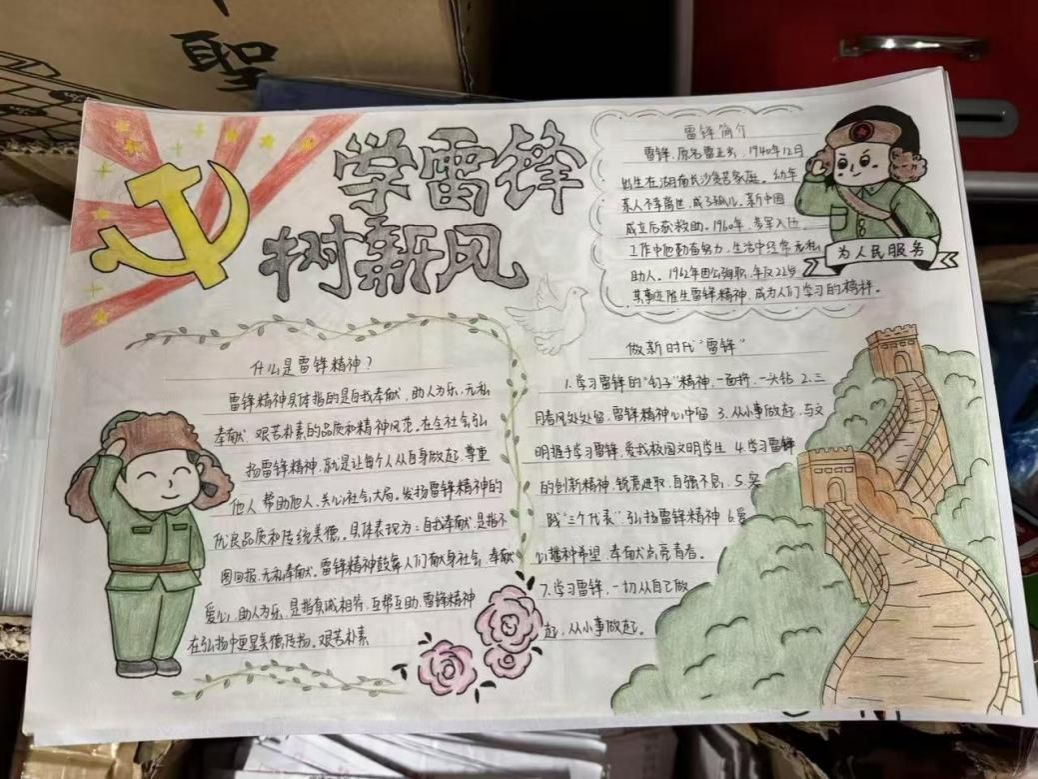 聖
学雷锋
树新风
雷锋简介
雷锋,原名雷正兴,1940年12月
出生在湖南长沙贫苦家庭。幼年
亲人不幸离世,成了孤儿。新中国
成立后获救助。1960年,参军入伍
工作中他勤奋努力,生活中经常无私
助人。1962年因公殉职,年仅22岁
其事迹催生雷锋精神,成为人们学习的榜样。
为人民服务
什么是雷锋精神?
雷锋精神具体指的是自我奉献、助人为乐、无私
奉献、艰苦朴素的品质和精神风范,在全社会弘
扬雷锋精神,就是让每个人从自身做起,尊重
他人、帮助他人、关心社会大局。发扬雷锋精神的
优良品质和传统美德。具体表现为:自我奉献,是指不
图回报、无私奉献。雷锋精神鼓舞人们献身社会、奉献
爱心、助人为乐,是指真诚相待、互帮互助,雷锋精神
在弘扬中更显美德传扬。艰苦朴素
做新时代“雷锋”
1.学习雷锋的“钉子”精神,一面挤,一头钻 2.三
月春风处处留,雷锋精神心中留 3.从小事做起,与文
明握手学习雷锋,爱我校园文明学生 4.学习雷锋
的创新精神,锐意进取,自强不息 5.实
践“三个代表”,弘扬雷锋精神 6.爱
心播种希望,奉献点亮青春。
7.学习雷锋,一切从自己做
起,从小事做起。